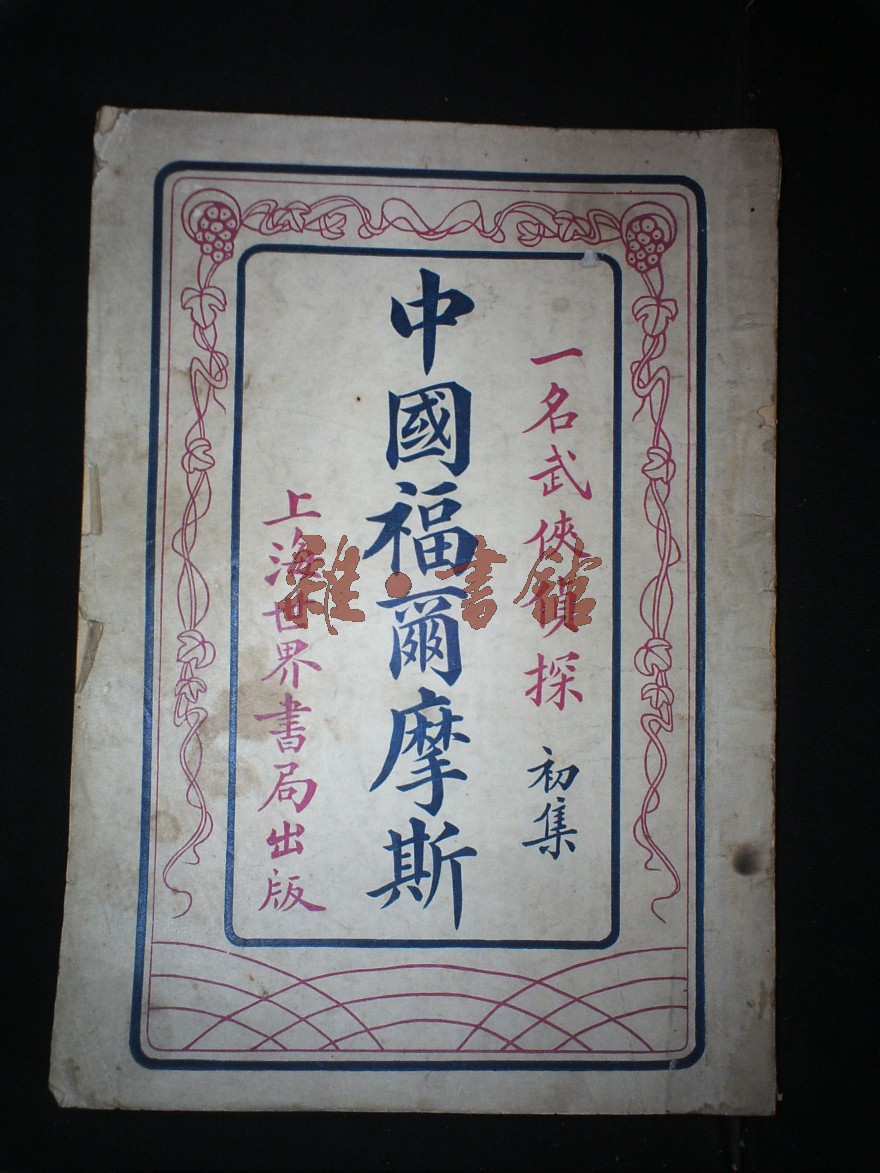 一名武俠偵探
初集
中國福爾摩斯
上海世界書局出版
雜·書館